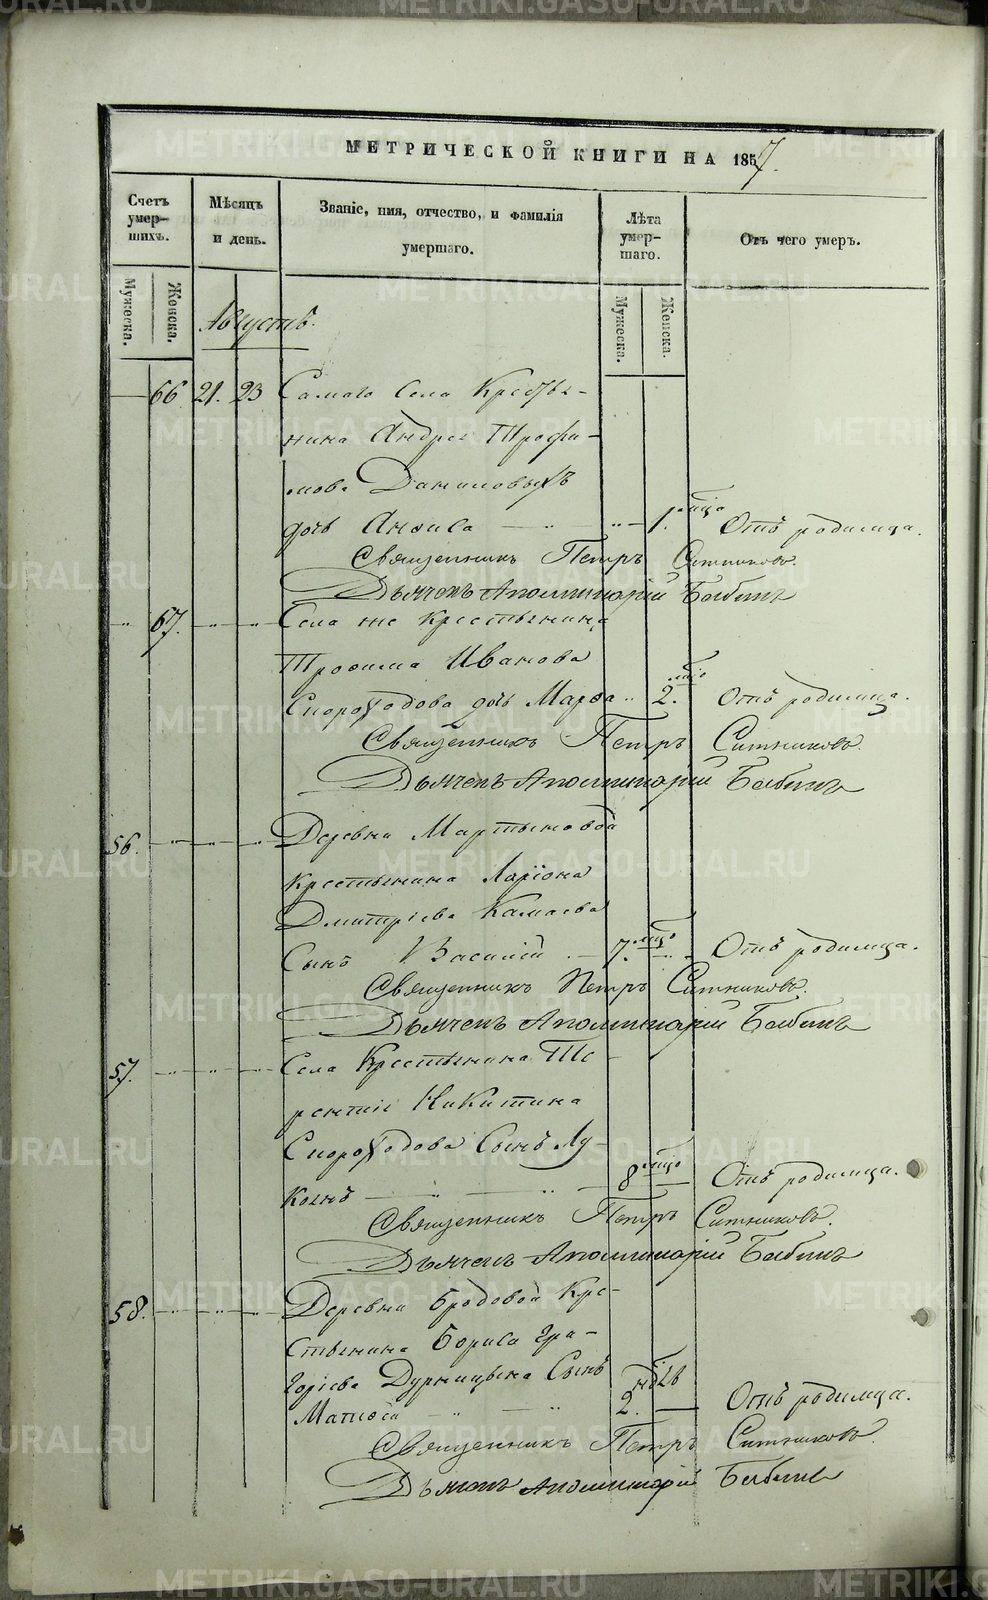 МЕТРИЧЕСКОЙ КНИГИ НА 1857.
Счетъ умер-шихъ.
Мѣсяцъ и день.
Званіе, имя, отчество, и фамилія умершаго.
Лѣта умер-шаго.
Отъ чего умеръ.
Мужеска.
Женска.
Мужеска.
Женска.
Августъ.
66 21. 23 Самаго Села Крестья-
нина Андрея Трофи-
мова Даниловыхъ
дочь Анфиса 1. мѣсяца Отъ родимца.
Священникъ Петръ Ситниковъ.
Дьячекъ Аполлинарій Бабинъ
67. Села же Крестьянина
Трофима Иванова
Скороходова дочь Марфа 2. Отъ родимца.
Священникъ Петръ Ситниковъ.
Дьячекъ Аполлинарій Бабинъ
56. Деревни Мартыновой
Крестьянина Ларіона
Дмитріева Камаева
Сынъ Василій 7. Отъ родимца.
Священникъ Петръ Ситниковъ.
Дьячекъ Аполлинарій Бабинъ
57. Села Крестьянина Те-
рентія Никитина
Скороходова Сынъ Лу-
коянъ 8 Отъ родимца.
Священникъ Петръ Ситниковъ.
Дьячекъ Аполлинарій Бабинъ
58. Деревни Бродовой Кре-
стьянина Бориса Гри-
горіева Дурницына Сынъ
Матвей 2. Отъ родимца.
Священникъ Петръ Ситниковъ.
Дьячекъ Аполлинарій Бабинъ
METRIKI.GASO-URAL.RU